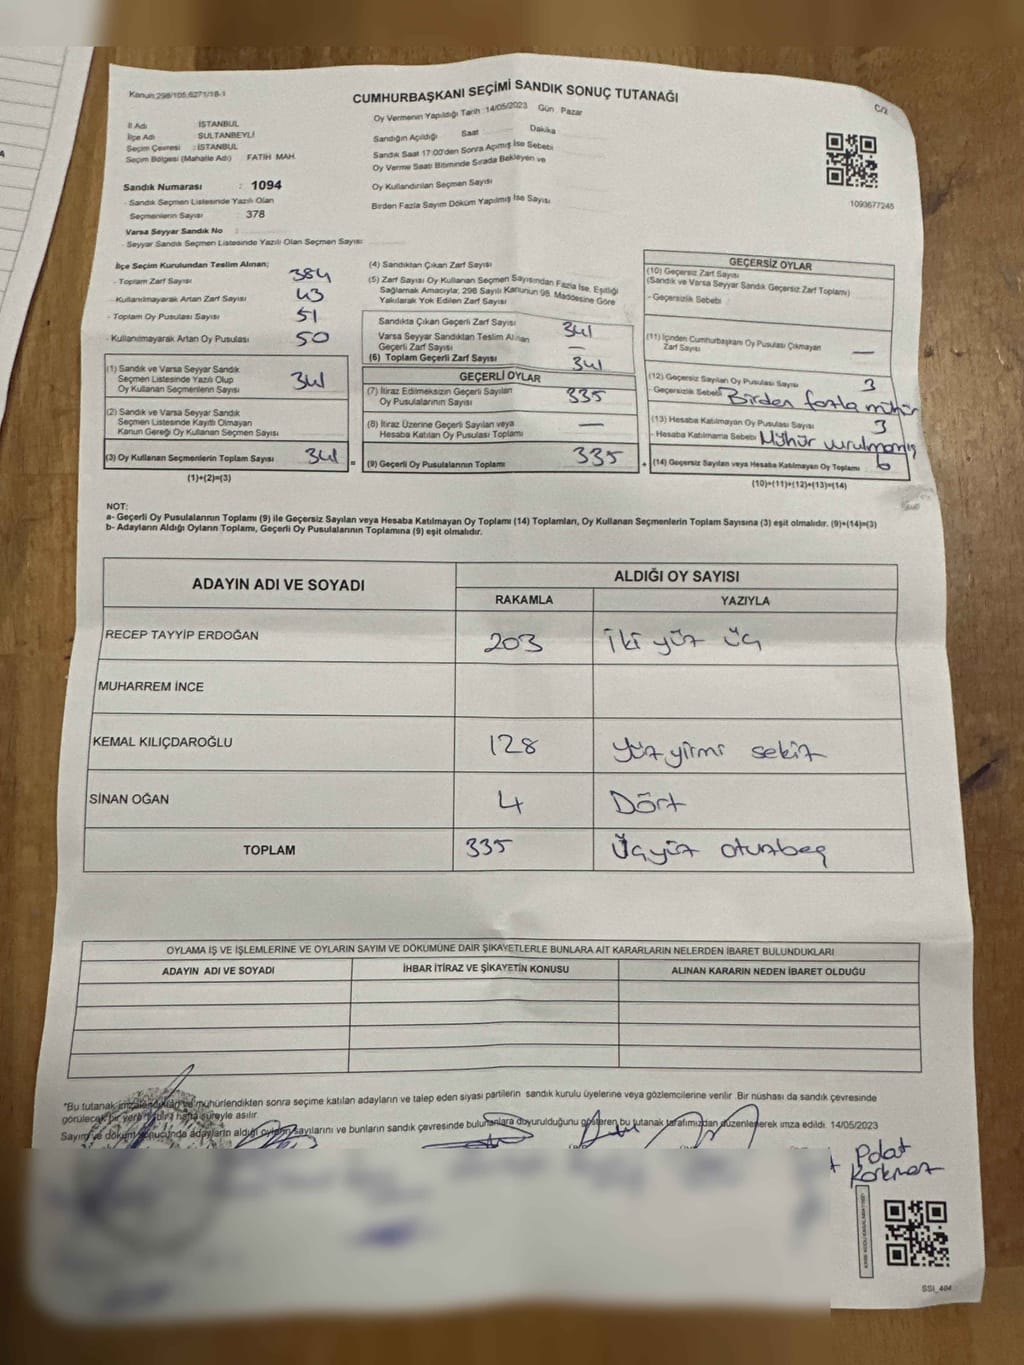 Kanun:298/105,6271/18-1
CUMHURBAŞKANI SEÇİMİ SANDIK SONUÇ TUTANAĞI
C/2
İl Adı : İSTANBUL
İlçe Adı : SULTANBEYLİ
Seçim Çevresi : İSTANBUL
Seçim Bölgesi (Mahalle Adı) : FATİH MAH.
Sandık Numarası : 1094
- Sandık Seçmen Listesinde Yazılı Olan
Seçmenlerin Sayısı : 378
Varsa Seyyar Sandık No :
- Seyyar Sandık Seçmen Listesinde Yazılı Olan Seçmen Sayısı :
Oy Vermenin Yapıldığı Tarih :14/05/2023 Gün : Pazar
Sandığın Açıldığı Saat Dakika
Sandık Saat 17:00'den Sonra Açımış İse Sebebi
Oy Verme Saati Bitiminde Sırada Bekleyen ve
Oy Kullandırılan Seçmen Sayısı
Birden Fazla Sayım Döküm Yapılmış İse Sayısı
1093677245
İlçe Seçim Kurulundan Teslim Alınan;
- Toplam Zarf Sayısı 384
- Kullanılmayarak Artan Zarf Sayısı 43
- Toplam Oy Pusulası Sayısı 51
- Kullanılmayarak Artan Oy Pusulası 50
(1) Sandık ve Varsa Seyyar Sandık
Seçmen Listesinde Yazılı Olup
Oy Kullanan Seçmenlerin Sayısı 341
(2) Sandık ve Varsa Seyyar Sandık
Seçmen Listesinde Kayıtlı Olmayan
Kanun Gereği Oy Kullanan Seçmen Sayısı
(3) Oy Kullanan Seçmenlerin Toplam Sayısı 341
(1)+(2)=(3)
=
(4) Sandıktan Çıkan Zarf Sayısı
(5) Zarf Sayısı Oy Kullanan Seçmen Sayısından Fazla İse, Eşitliği
Sağlamak Amacıyla; 298 Sayılı Kanunun 98. Maddesine Göre
Yakılarak Yok Edilen Zarf Sayısı
Sandıkta Çıkan Geçerli Zarf Sayısı 341
Varsa Seyyar Sandıktan Teslim Alınan
Geçerli Zarf Sayısı —
(6) Toplam Geçerli Zarf Sayısı 341
GEÇERLİ OYLAR
(7) İtiraz Edilmeksizin Geçerli Sayılan
Oy Pusulalarının Sayısı 335
(8) İtiraz Üzerine Geçerli Sayılan veya
Hesaba Katılan Oy Pusulası Toplamı —
(9) Geçerli Oy Pusulalarının Toplamı 335
+
GEÇERSİZ OYLAR
(10) Geçersiz Zarf Sayısı
(Sandık ve Varsa Seyyar Sandık Geçersiz Zarf Toplamı)
- Geçersizlik Sebebi
(11) İçinden Cumhurbaşkanı Oy Pusulası Çıkmayan
Zarf Sayısı —
(12) Geçersiz Sayılan Oy Pusulası Sayısı 3
- Geçersizlik Sebebi Birden fazla mühür
(13) Hesaba Katılmayan Oy Pusulası Sayısı 3
- Hesaba Katılmama Sebebi Mühür vurulmamış
(14) Geçersiz Sayılan veya Hesaba Katılmayan Oy Toplamı 6
(10)+(11)+(12)+(13)=(14)
NOT:
a- Geçerli Oy Pusulalarının Toplamı (9) ile Geçersiz Sayılan veya Hesaba Katılmayan Oy Toplamı (14) Toplamları, Oy Kullanan Seçmenlerin Toplam Sayısına (3) eşit olmalıdır. (9)+(14)=(3)
b- Adayların Aldığı Oyların Toplamı, Geçerli Oy Pusulalarının Toplamına (9) eşit olmalıdır.
ADAYIN ADI VE SOYADI
ALDIĞI OY SAYISI
RAKAMLA YAZIYLA
RECEP TAYYİP ERDOĞAN 203 iki yüz üç
MUHARREM İNCE
KEMAL KILIÇDAROĞLU 128 Yüz yirmi sekiz
SİNAN OĞAN 4 Dört
TOPLAM 335 Üçyüz otuzbeş
OYLAMA İŞ VE İŞLEMLERİNE VE OYLARIN SAYIM VE DÖKÜMÜNE DAİR ŞİKAYETLERLE BUNLARA AİT KARARLARIN NELERDEN İBARET BULUNDUKLARI
ADAYIN ADI VE SOYADI İHBAR İTİRAZ VE ŞİKAYETİN KONUSU ALINAN KARARIN NEDEN İBARET OLDUĞU
*Bu tutanak imzalandıktan ve mühürlendikten sonra seçime katılan adayların ve talep eden siyasi partilerin sandık kurulu üyelerine veya gözlemcilerine verilir. Bir nüshası da sandık çevresinde
görülecek bir yere bir hafta süreyle asılır.
Sayım ve döküm sonucunda adayların aldığı oyların sayılarını ve bunların sandık çevresinde bulunanlara duyurulduğunu gösteren bu tutanak tarafımızdan düzenlenerek imza edildi. 14/05/2023
Polat
Korkmaz
SSI_404